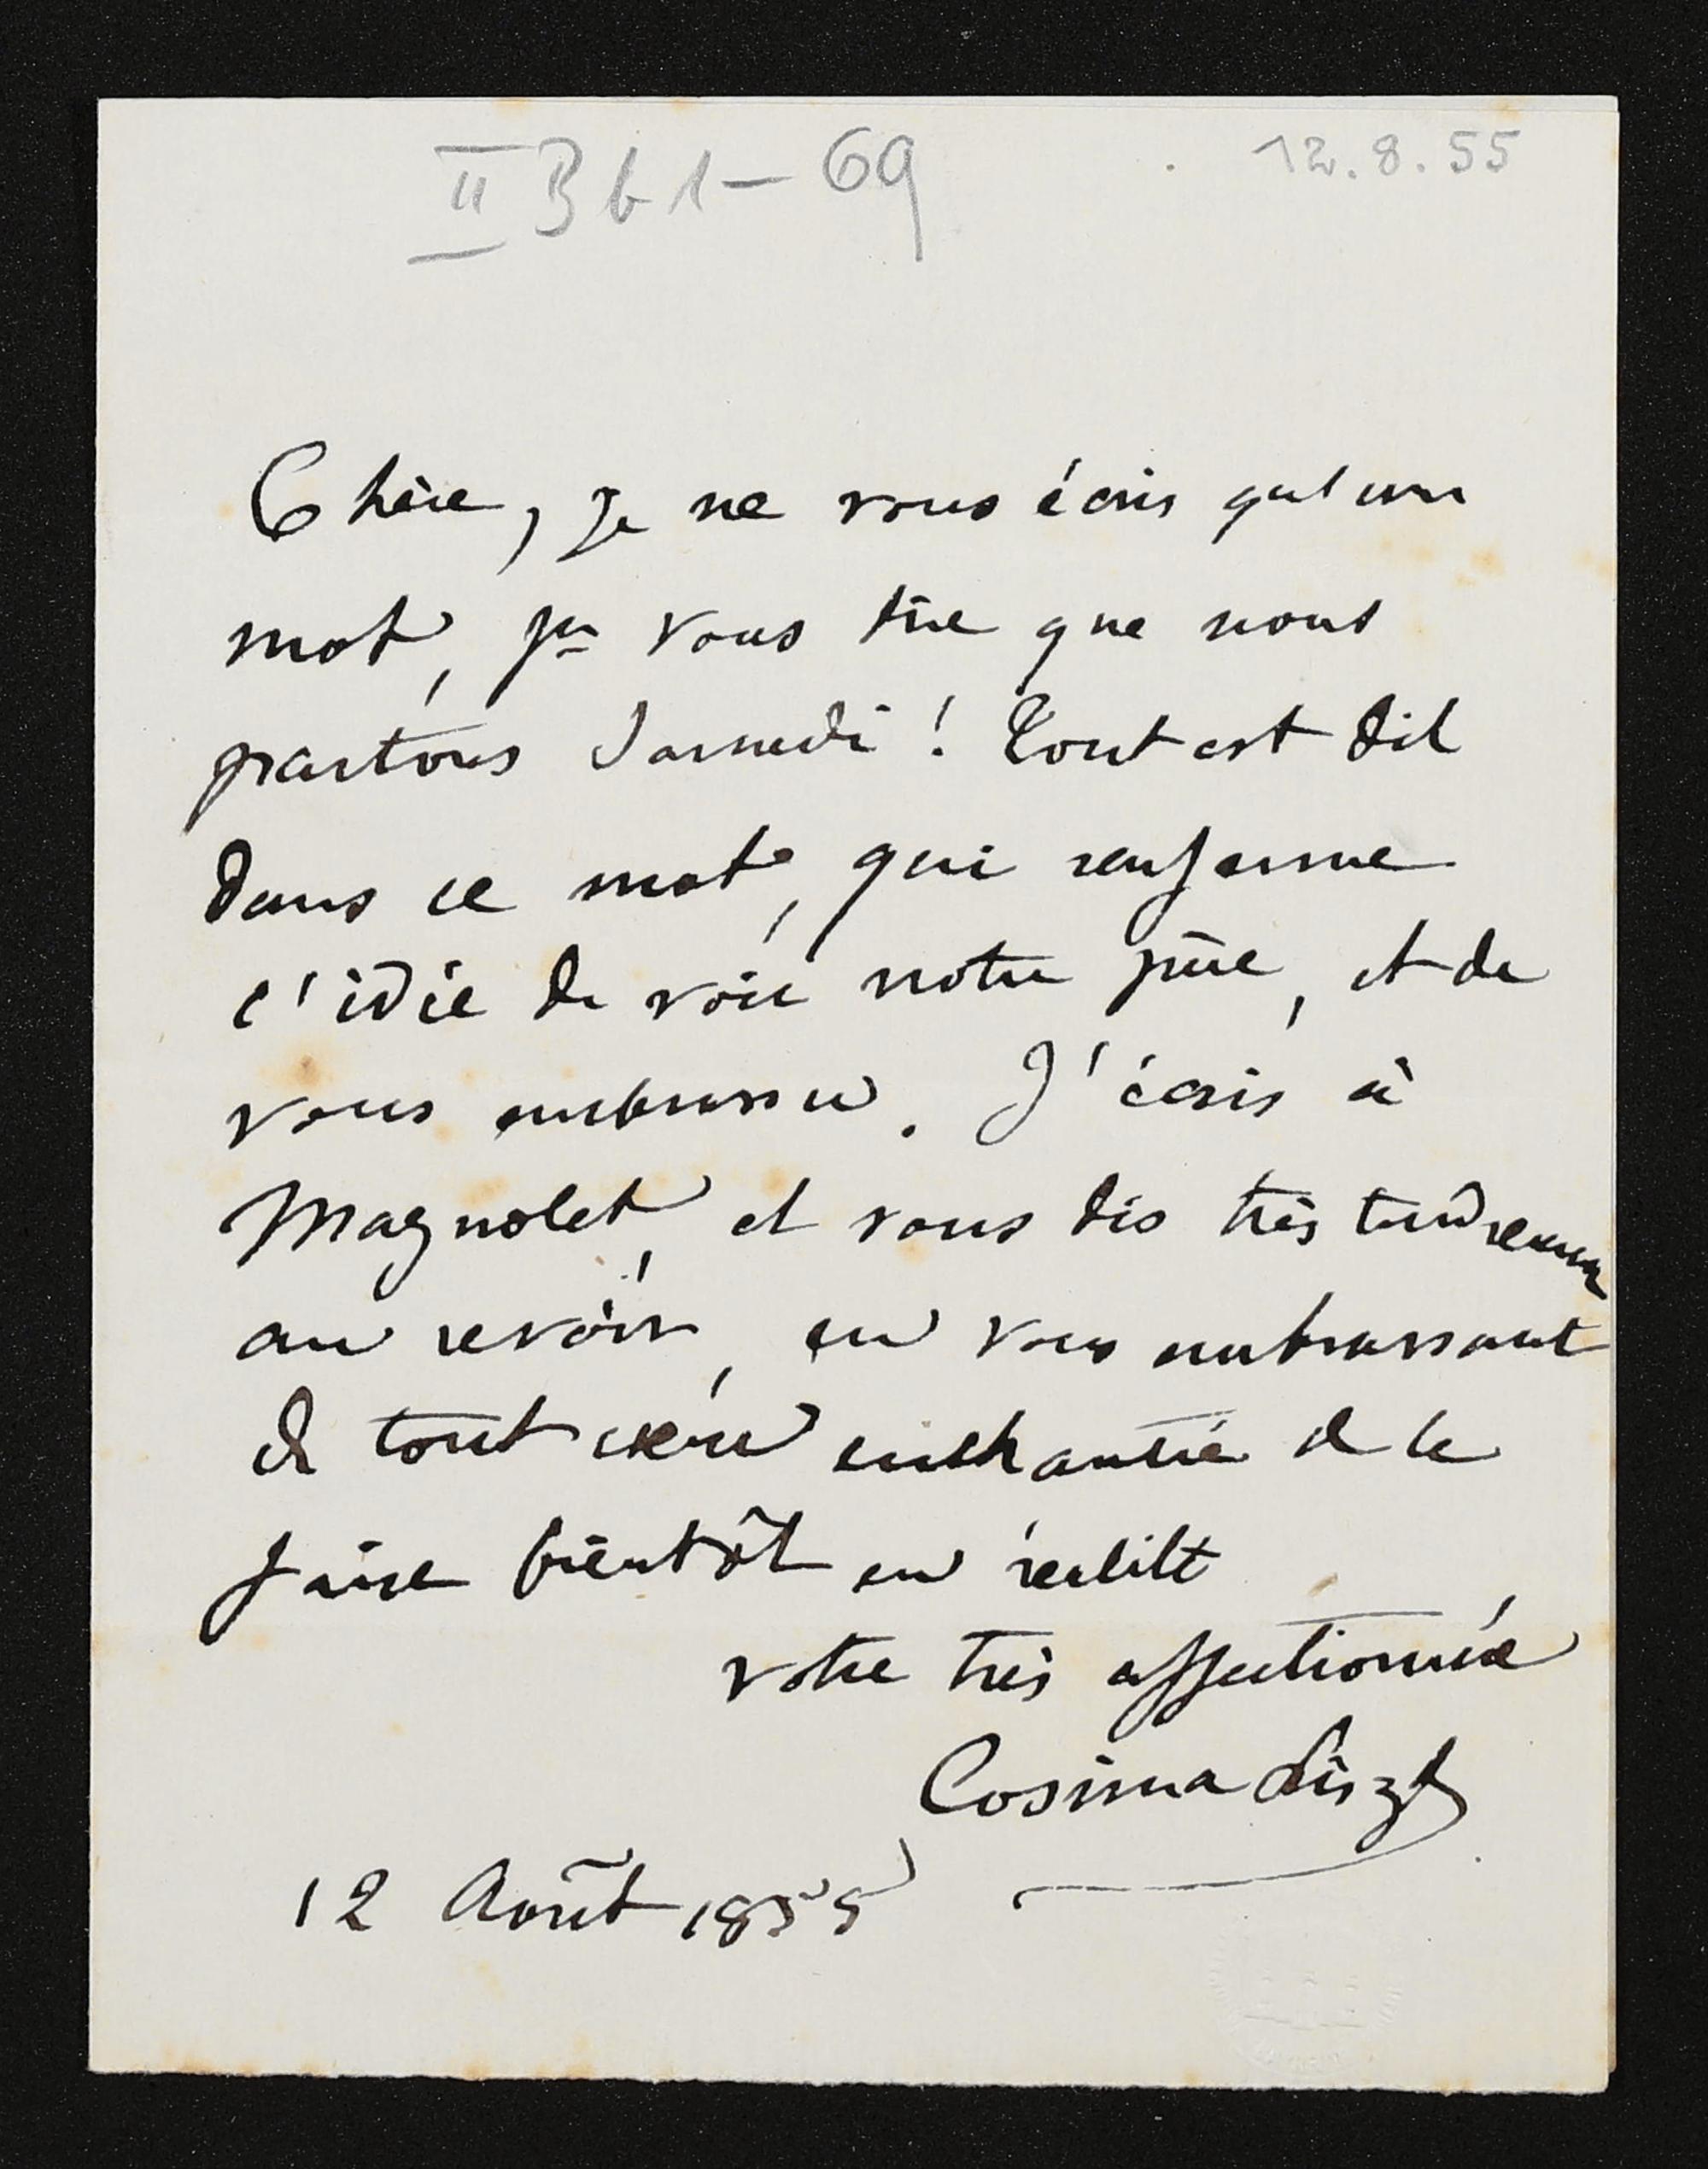 II B b 1 - 69
12.8.55
Chère, je ne vous écris qu'un
mot, pr vous dire que nous
partons Samedi ! Tout est dit
dans ce mot, qui renferme
l'idée de voir notre père, et de
vous embrasser. J'écris à
Magnolet, et vous dis très tendremen
au revoir, en vous embrassant
de tout cœur enchantée de le
faire bientôt en réalité
votre très affectionnée
Cosima Liszt
12 Août 1855